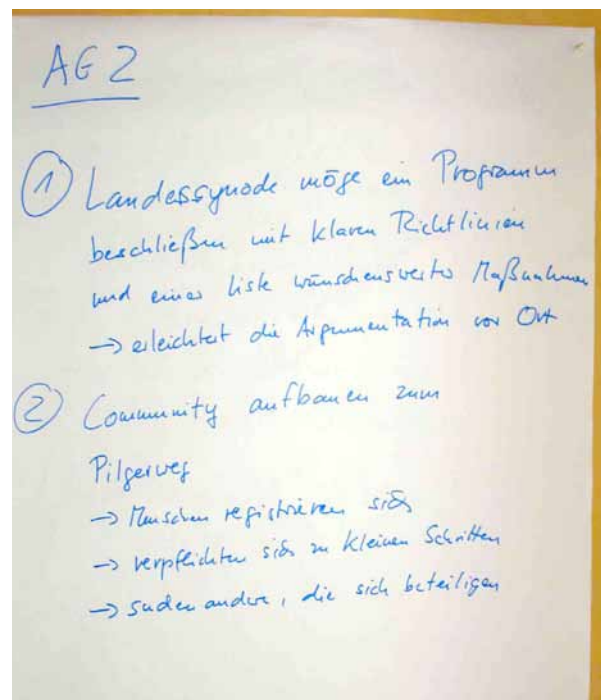 AG 2
① Landessynode möge ein Programm
beschließen mit klaren Richtlinien
und einer Liste wünschenswerter Maßnahmen
→ erleichtert die Argumentation vor Ort
② Community aufbauen zum
Pilgerweg
→ Menschen registrieren sich
→ verpflichten sich zu kleinen Schritten
→ suchen andere, die sich beteiligen